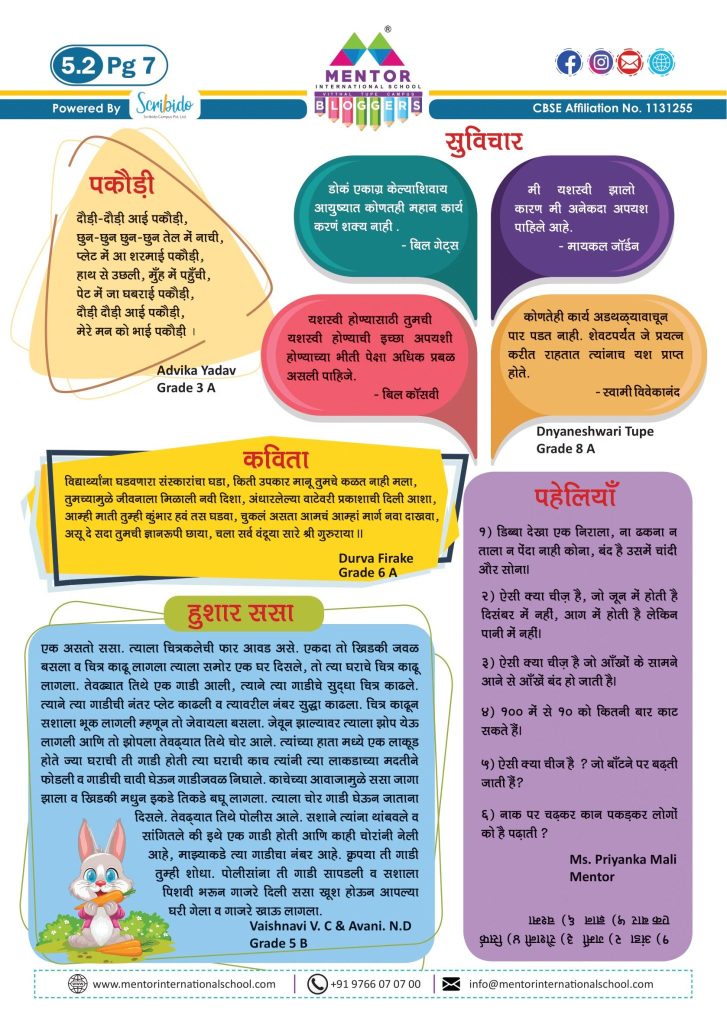 5.2 Pg 7
MENTOR
INTERNATIONAL SCHOOL
VITTHAL TUPE CAMPUS
BLOGGERS
®
Powered By Scribido
Scribido Campus Pvt. Ltd.
CBSE Affiliation No. 1131255
पकौड़ी
दौड़ी-दौड़ी आई पकौड़ी,
छुन-छुन छुन-छुन तेल में नाची,
प्लेट में आ शरमाई पकौड़ी,
हाथ से उछली, मुँह में पहुँची,
पेट में जा घबराई पकौड़ी,
दौड़ी दौड़ी आई पकौड़ी,
मेरे मन को भाई पकौड़ी ।
Advika Yadav
Grade 3 A
सुविचार
डोकं एकाग्र केल्याशिवाय
आयुष्यात कोणतही महान कार्य
करणं शक्य नाही .
- बिल गेट्स
मी यशस्वी झालो
कारण मी अनेकदा अपयश
पाहिले आहे.
- मायकल जॉर्डन
यशस्वी होण्यासाठी तुमची
यशस्वी होण्याची इच्छा अपयशी
होण्याच्या भीती पेक्षा अधिक प्रबळ
असली पाहिजे.
- बिल कॉसवी
कोणतेही कार्य अडथळ्यावाचून
पार पडत नाही. शेवटपर्यंत जे प्रयत्न
करीत राहतात त्यांनाच यश प्राप्त
होते.
- स्वामी विवेकानंद
Dnyaneshwari Tupe
Grade 8 A
कविता
विद्यार्थ्यांना घडवणारा संस्कारांचा घडा, किती उपकार मानू तुमचे कळत नाही मला,
तुमच्यामुळे जीवनाला मिळाली नवी दिशा, अंधारलेल्या वाटेवरी प्रकाशाची दिली आशा,
आम्ही माती तुम्ही कुंभार हवं तस घडवा, चुकलं असता आमचं आम्हां मार्ग नवा दाखवा,
असू दे सदा तुमची ज्ञानरूपी छाया, चला सर्व वंदूया सारे श्री गुरुराया ।।
Durva Firake
Grade 6 A
हुशार ससा
एक असतो ससा. त्याला चित्रकलेची फार आवड असे. एकदा तो खिडकी जवळ
बसला व चित्र काढू लागला त्याला समोर एक घर दिसले, तो त्या घराचे चित्र काढू
लागला. तेवढ्यात तिथे एक गाडी आली, त्याने त्या गाडीचे सुद्धा चित्र काढले.
त्याने त्या गाडीची नंतर प्लेट काढली व त्यावरील नंबर सुद्धा काढला. चित्र काढून
सशाला भूक लागली म्हणून तो जेवायला बसला. जेवून झाल्यावर त्याला झोप येऊ
लागली आणि तो झोपला तेवढ्यात तिथे चोर आले. त्यांच्या हाता मध्ये एक लाकूड
होते ज्या घराची ती गाडी होती त्या घराची काच त्यांनी त्या लाकडाच्या मदतीने
फोडली व गाडीची चावी घेऊन गाडीजवळ निघाले. काचेच्या आवाजामुळे ससा जागा
झाला व खिडकी मधुन इकडे तिकडे बघू लागला. त्याला चोर गाडी घेऊन जाताना
दिसले. तेवढ्यात तिथे पोलीस आले. सशाने त्यांना थांबवले व
सांगितले की इथे एक गाडी होती आणि काही चोरांनी नेली
आहे, माझ्याकडे त्या गाडीचा नंबर आहे. कृपया ती गाडी
तुम्ही शोधा. पोलीसांना ती गाडी सापडली व सशाला
पिशवी भरून गाजरे दिली ससा खूश होऊन आपल्या
घरी गेला व गाजरे खाऊ लागला.
Vaishnavi V. C & Avani. N.D
Grade 5 B
पहेलियाँ
१) डिब्बा देखा एक निराला, ना ढकना न
ताला न पेंदा नाही कोना, बंद है उसमें चांदी
और सोना।
२) ऐसी क्या चीज़ है, जो जून में होती है
दिसंबर में नहीं, आग में होती है लेकिन
पानी में नहीं।
३) ऐसी क्या चीज़ है जो आँखों के सामने
आने से आँखें बंद हो जाती है।
४) १०० में से १० को कितनी बार काट
सकते हैं।
५) ऐसी क्या चीज है ? जो बाँटने पर बढ़ती
जाती हैं?
६) नाक पर चढ़कर कान पकड़कर लोगों
को है पढ़ाती ?
Ms. Priyanka Mali
Mentor
१) अंडा २) गर्मी ३) रौशनी ४) सिर्फ
एक बार ५) ज्ञान ६) चश्मा
www.mentorinternationalschool.com
+91 9766 07 07 00
info@mentorinternationalschool.com